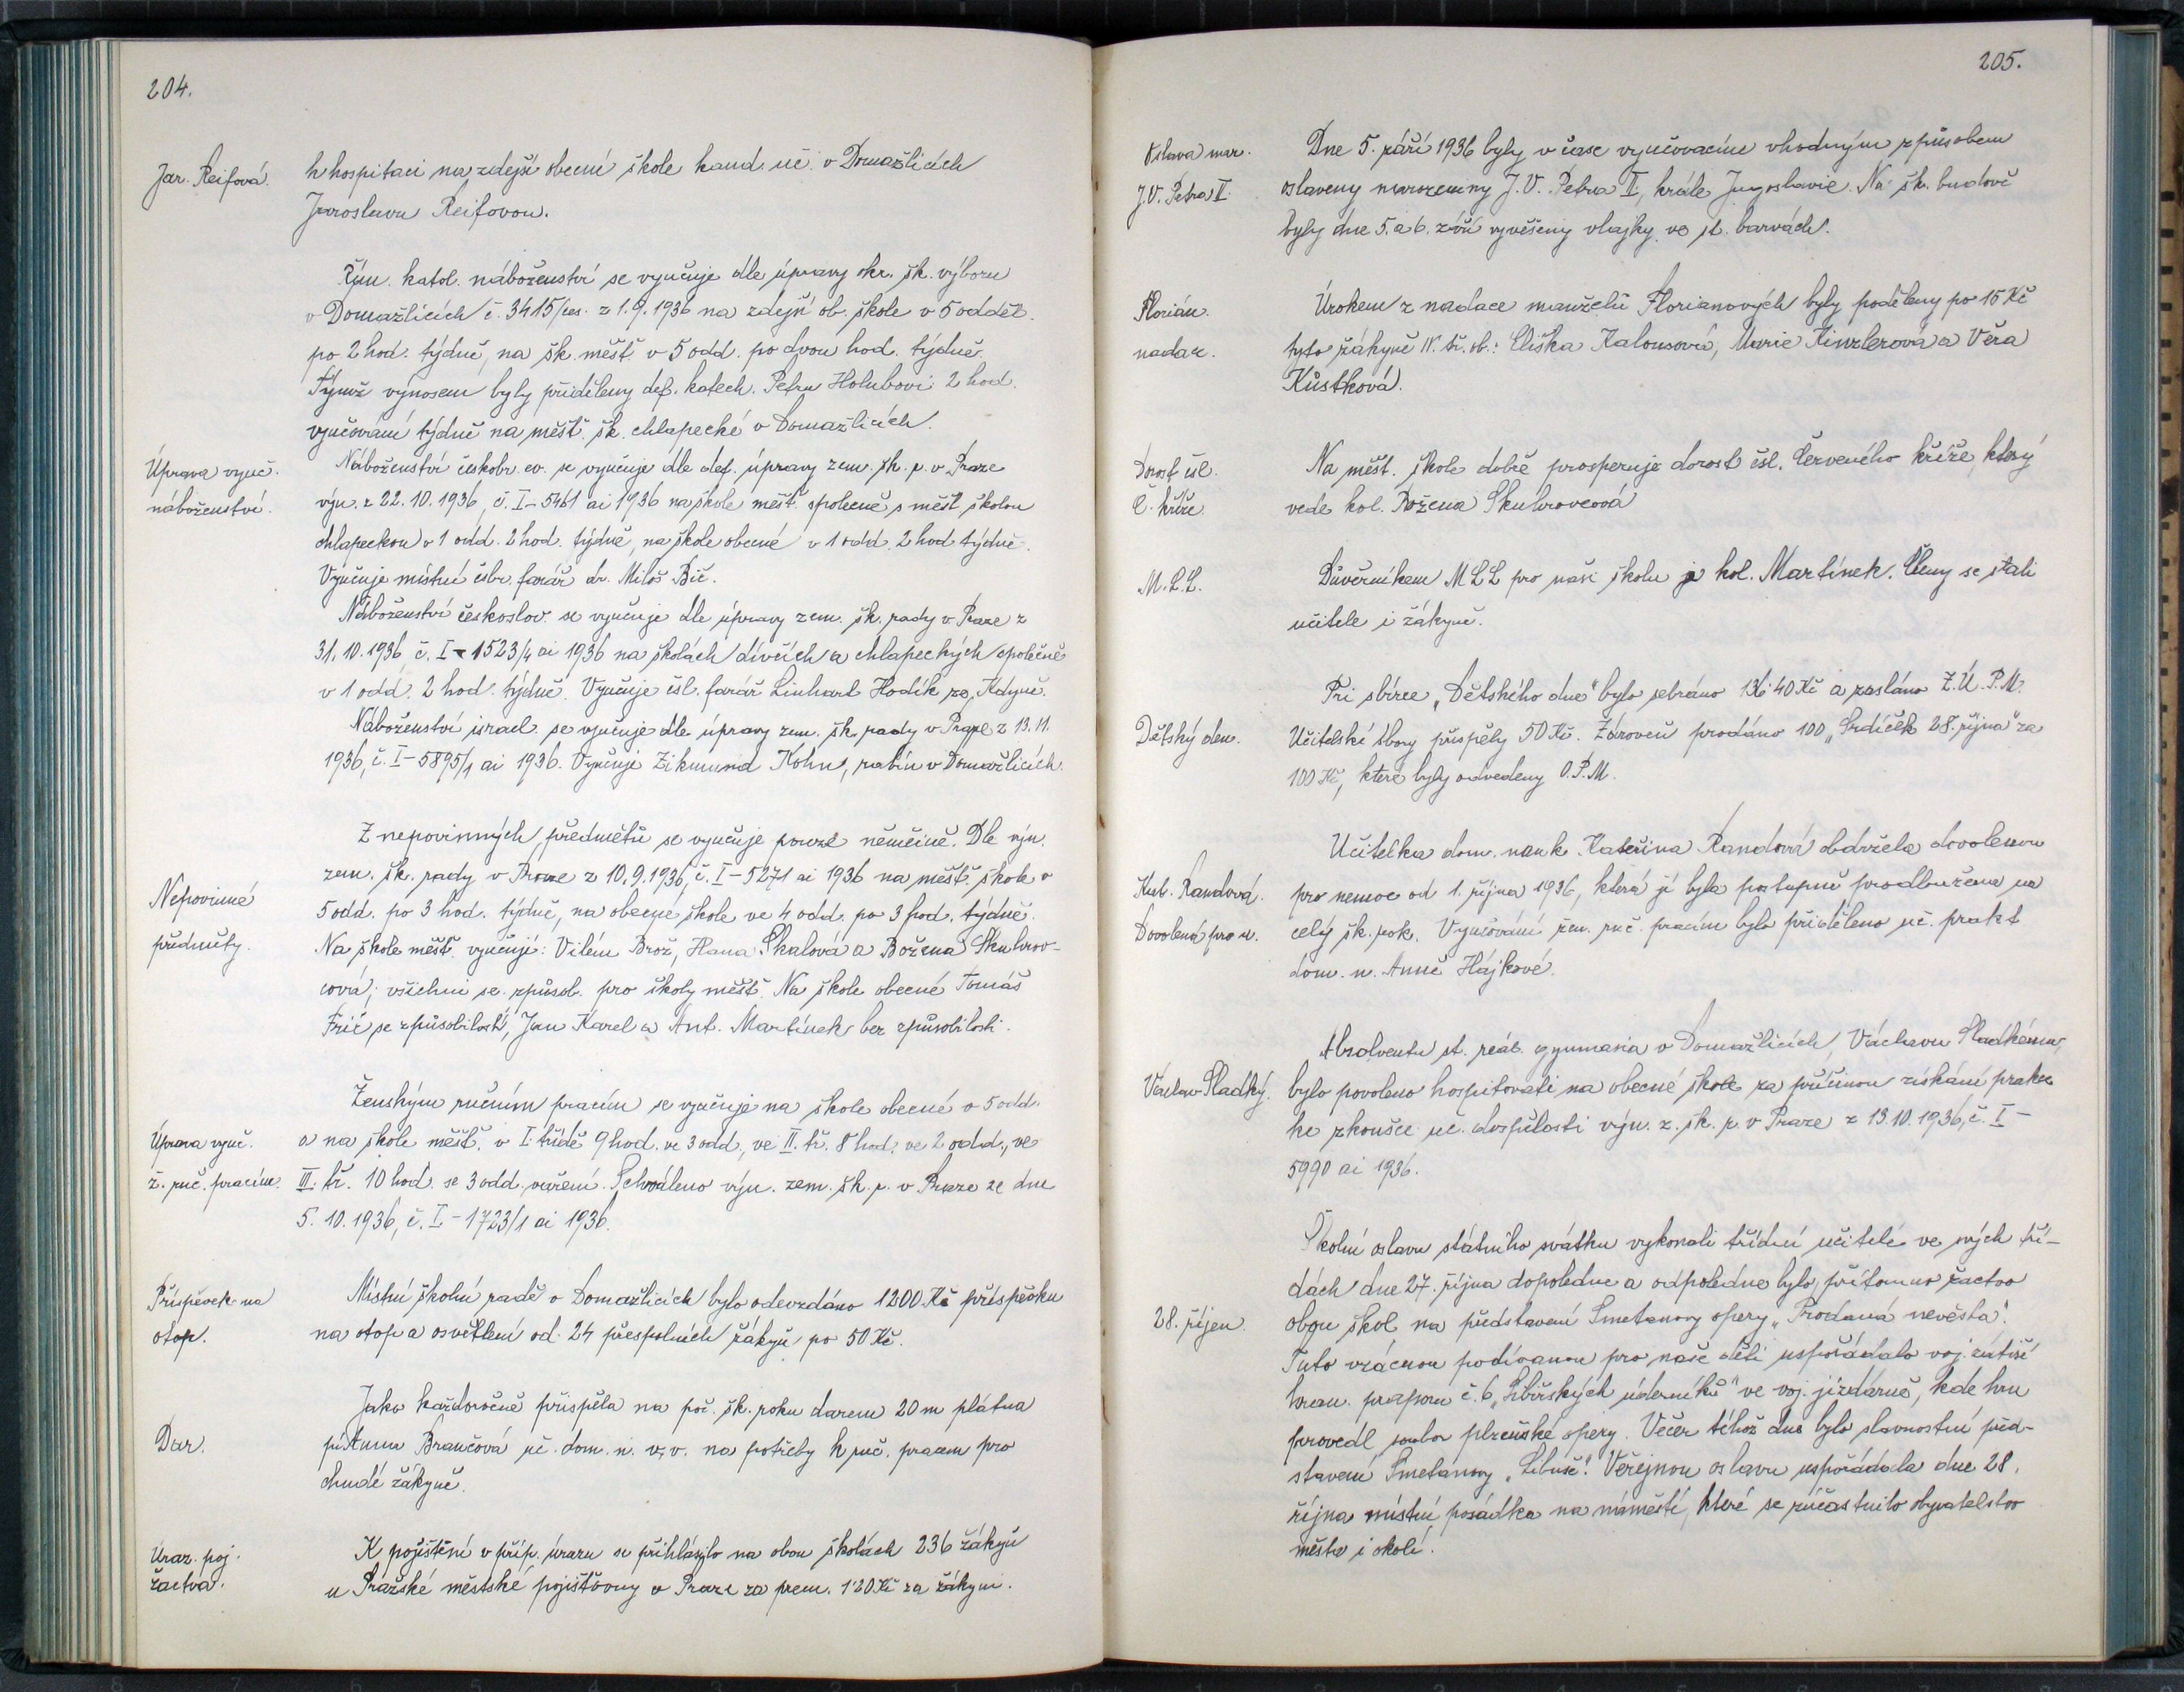 204.
Jar. Reifová.
k hospitaci na zdejší obecné škole kand. uč. v Domažlicích
Jaroslavu Reifovou.
Řím. katol. náboženství se vyučuje dle úpravy okr. šk. výboru
v Domažlicích č. 3415/ z 1.9.1936 na zdejší ob. škole v 5 odděl.
po 2 hod. týdně, na šk. měšť. v 5 odd. po dvou hod. týdně.
Týmž výnosem byly přiděleny def. katech. Petru Holubovi 2 hod.
vyučování týdně na měšť. šk. chlapecké v Domažlicích.
Úprava vyuč.
náboženství.
Náboženství českobr. ev. se vyučuje dle def. úpravy zem. šk. r. v Praze
výn. z 22.10.1936, č. I-5461 ai 1936 na škole měšť. společně s měšť. školou
chlapeckou v 1 odd. 2 hod. týdně, na škole obecné v 1 odd. 2 hod týdně.
Vyučuje místní čsbr. farář dr. Miloš Bič.
Náboženství českoslov. se vyučuje dle úpravy zem. šk. rady v Praze z
31.10.1936 č. I-1523/4 ai 1936 na školách dívčích a chlapeckých společně
v 1 odd. 2 hod. týdně. Vyučuje čsl. farář Linhart Hodík ze Kdyně.
Náboženství israel. se vyučuje dle úpravy zem. šk. rady v Praze z 13.11.
1936, č. I-5895/1 ai 1936. Vyučuje Zikmund Kohn, rabín v Domažlicích.
Nepovinné
předměty.
Z nepovinných předmětů se vyučuje pouze němčině. Dle výn.
zem. šk. rady v Praze z 10.9.1936, č. I-5271 ai 1936 na měšť. škole v
5 odd. po 3 hod. týdně, na obecné škole ve 4 odd. po 3 hod. týdně.
Na škole měšť. vyučují: Vilém Brož, Hana Skalová a Božena Skuhrov-
cová; všichni se způsob. pro školy měšť. Na škole obecné Tomáš
Frič se způsobilostí, Jan Karel a Ant. Martínek bez způsobilosti.
Úprava vyuč.
ž. ruč. pracím.
Ženským ručním pracím se vyučuje na škole obecné v 5 odd.
a na škole měšť. v I. třídě 9 hod. ve 3 odd., ve II. tř. 8 hod. ve 2 odd., ve
III. tř. 10 hod. se 3 odd. vaření. Schváleno výn. zem. šk. r. v Praze ze dne
5. 10. 1936, č. I-1723/1 ai 1936.
Příspěvek na
otop.
Místní školní radě v Domažlicích bylo odevzdáno 1200 Kč příspěvku
na otop a osvětlení od 24 přespolních žákyň po 50 Kč.
Dar.
Jako každoročně přispěla na poč. šk. roku darem 20 m plátna
pí Anna Brančová uč. dom. n. v. v. na potřeby k ruč. pracem pro
chudé žákyně.
Úraz. poj.
žactva.
K pojištění v příp. úrazu se přihlásilo na obou školách 236 žákyň
u Pražské městské pojišťovny v Praze za prem. 1'20 Kč za žákyni.
205.
Oslava nar.
J.V. Petra II.
Dne 5. září 1936 byly v čase vyučovacím vhodným způsobem
oslaveny narozeniny J. V. Petra II, krále Jugoslavie. Na šk. budově
byly dne 5. a 6. září vyvěšeny vlajky ve st. barvách.
Florián.
nadac.
Úrokem z nadace manželů Florianových byly poděleny po 15 Kč
tyto žákyně IV. tř. ob.: Eliška Kalousová, Marie Kinzlerová a Věra
Kůstková.
Dorost čsl.
Č. kříže.
Na měšť. škole dobře prosperuje dorost čsl. Červeného kříže, který
vede kol. Božena Skuhrovcová
M.L.L.
Důvěrníkem MLL pro naši školu je kol. Martínek. Členy se stali
učitelé i žákyně.
Dětský den.
Při sbírce „Dětského dne“ bylo sebráno 136'40 Kč a zasláno Z.Ú.P.M.
Učitelské sbory přispěly 50 Kč. Zároveň prodáno 100 „Srdíček 28. října“ za
100 Kč, které byly odvedeny O.P.M.
Kat. Randová.
Dovolená pro n.
Učitelka dom. nauk Kateřina Randová obdržela dovolenou
pro nemoc od 1. října 1936, která jí byla postupně prodloužena na
celý šk. rok. Vyučování žen. ruč. pracím bylo přiděleno uč. prakt
dom. n. Anně Hájkové.
Václav Sladký.
Absolventu st. reál. gymnasia v Domažlicích, Václavu Sladkému,
bylo povoleno hospitovati na obecné škole za příčinou získání praxe
ke zkoušce uč. dospělosti výn. z. šk. r. v Praze z 13.10.1936, č. I-
5990 ai 1936.
28. říjen.
Školní oslavu státního svátku vykonali třídní učitelé ve svých tří-
dách dne 27. října dopoledne a odpoledne bylo přítomno žactvo
obou škol na představení Smetanovy opery „Prodaná nevěsta“.
Tuto vzácnou podívanou pro naše děti uspořádalo voj. zátiší
hran. praporu č. 6 „Sibiřských úderníků“ ve voj. jízdárně, kde hru
provedl soubor plzeňské opery. Večer téhož dne bylo slavnostní před-
stavení Smetanovy „Libuše“. Veřejnou oslavu uspořádala dne 28.
října místní posádka na náměstí, které se zúčastnilo obyvatelstvo
města i okolí.